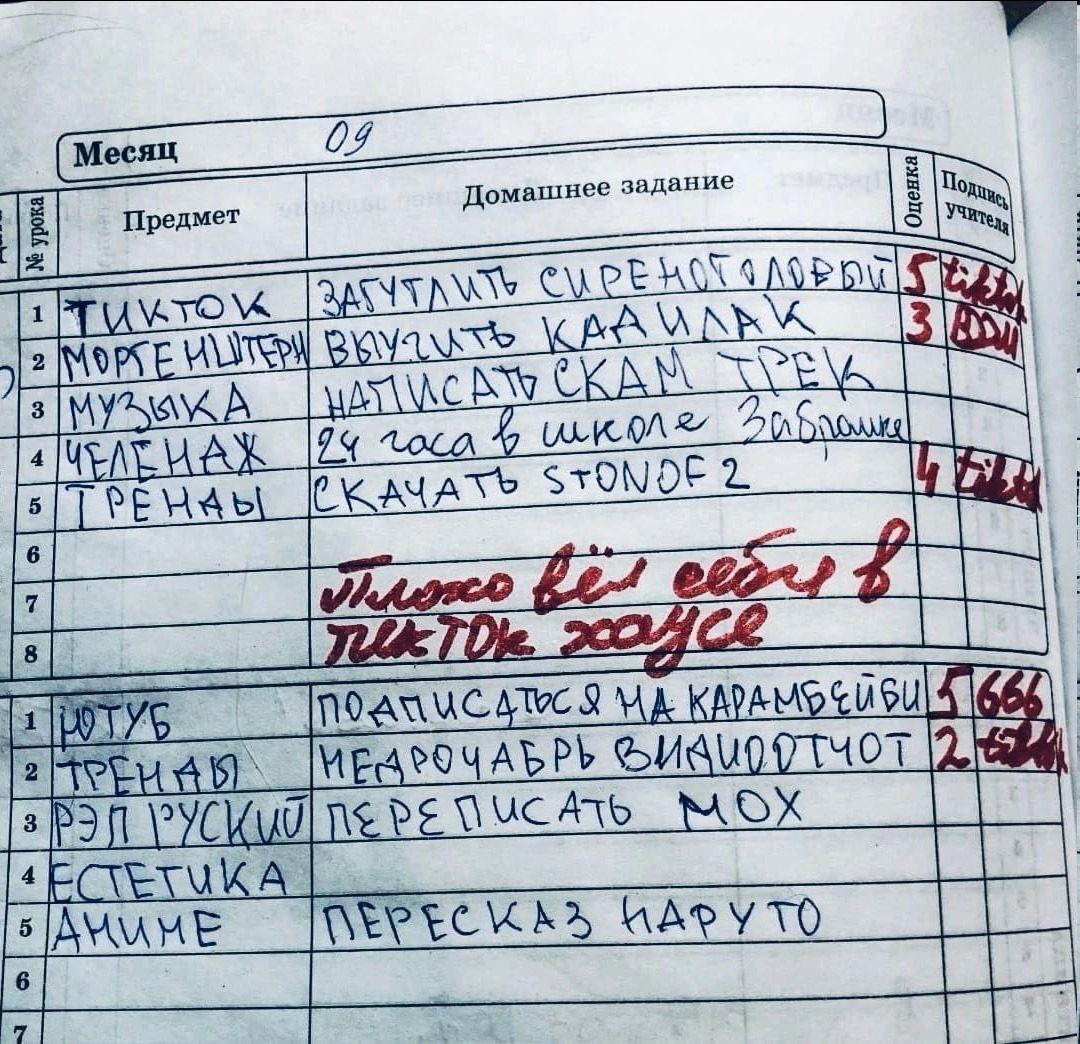 Месяц 09
№ урока Предмет Домашнее задание Оценка Подпись учителя
1 ТИКТОК ЗАГУГЛИТЬ СИРЕНОГОЛОВЫЙ 5 tiktok
2 МОРГЕНШТЕРН ВЫУЧИТЬ КАДИЛАК 3
3 МУЗЫКА НАПИСАТЬ СКАМ ТРЕК
4 ЧЕЛЕНАЖ 24 часа в школе Забрашке
5 ТРЕНДЫ СКАЧАТЬ STONOF 2 4 tiktok
6
7 Плохо вёл себя в
8 тикток хаусе
1 ЮТУБ ПОДПИСАТЬСЯ НА КАРАМБЕЙБИ 5 666
2 ТРЕНДЫ НЕДРОЧАБРЬ ВИДИООТЧОТ 2 tiktok
3 РЭП РУСКИЙ ПЕРЕПИСАТЬ МОХ
4 ЕСТЕТИКА
5 АНИМЕ ПЕРЕСКАЗ НАРУТО
6
7